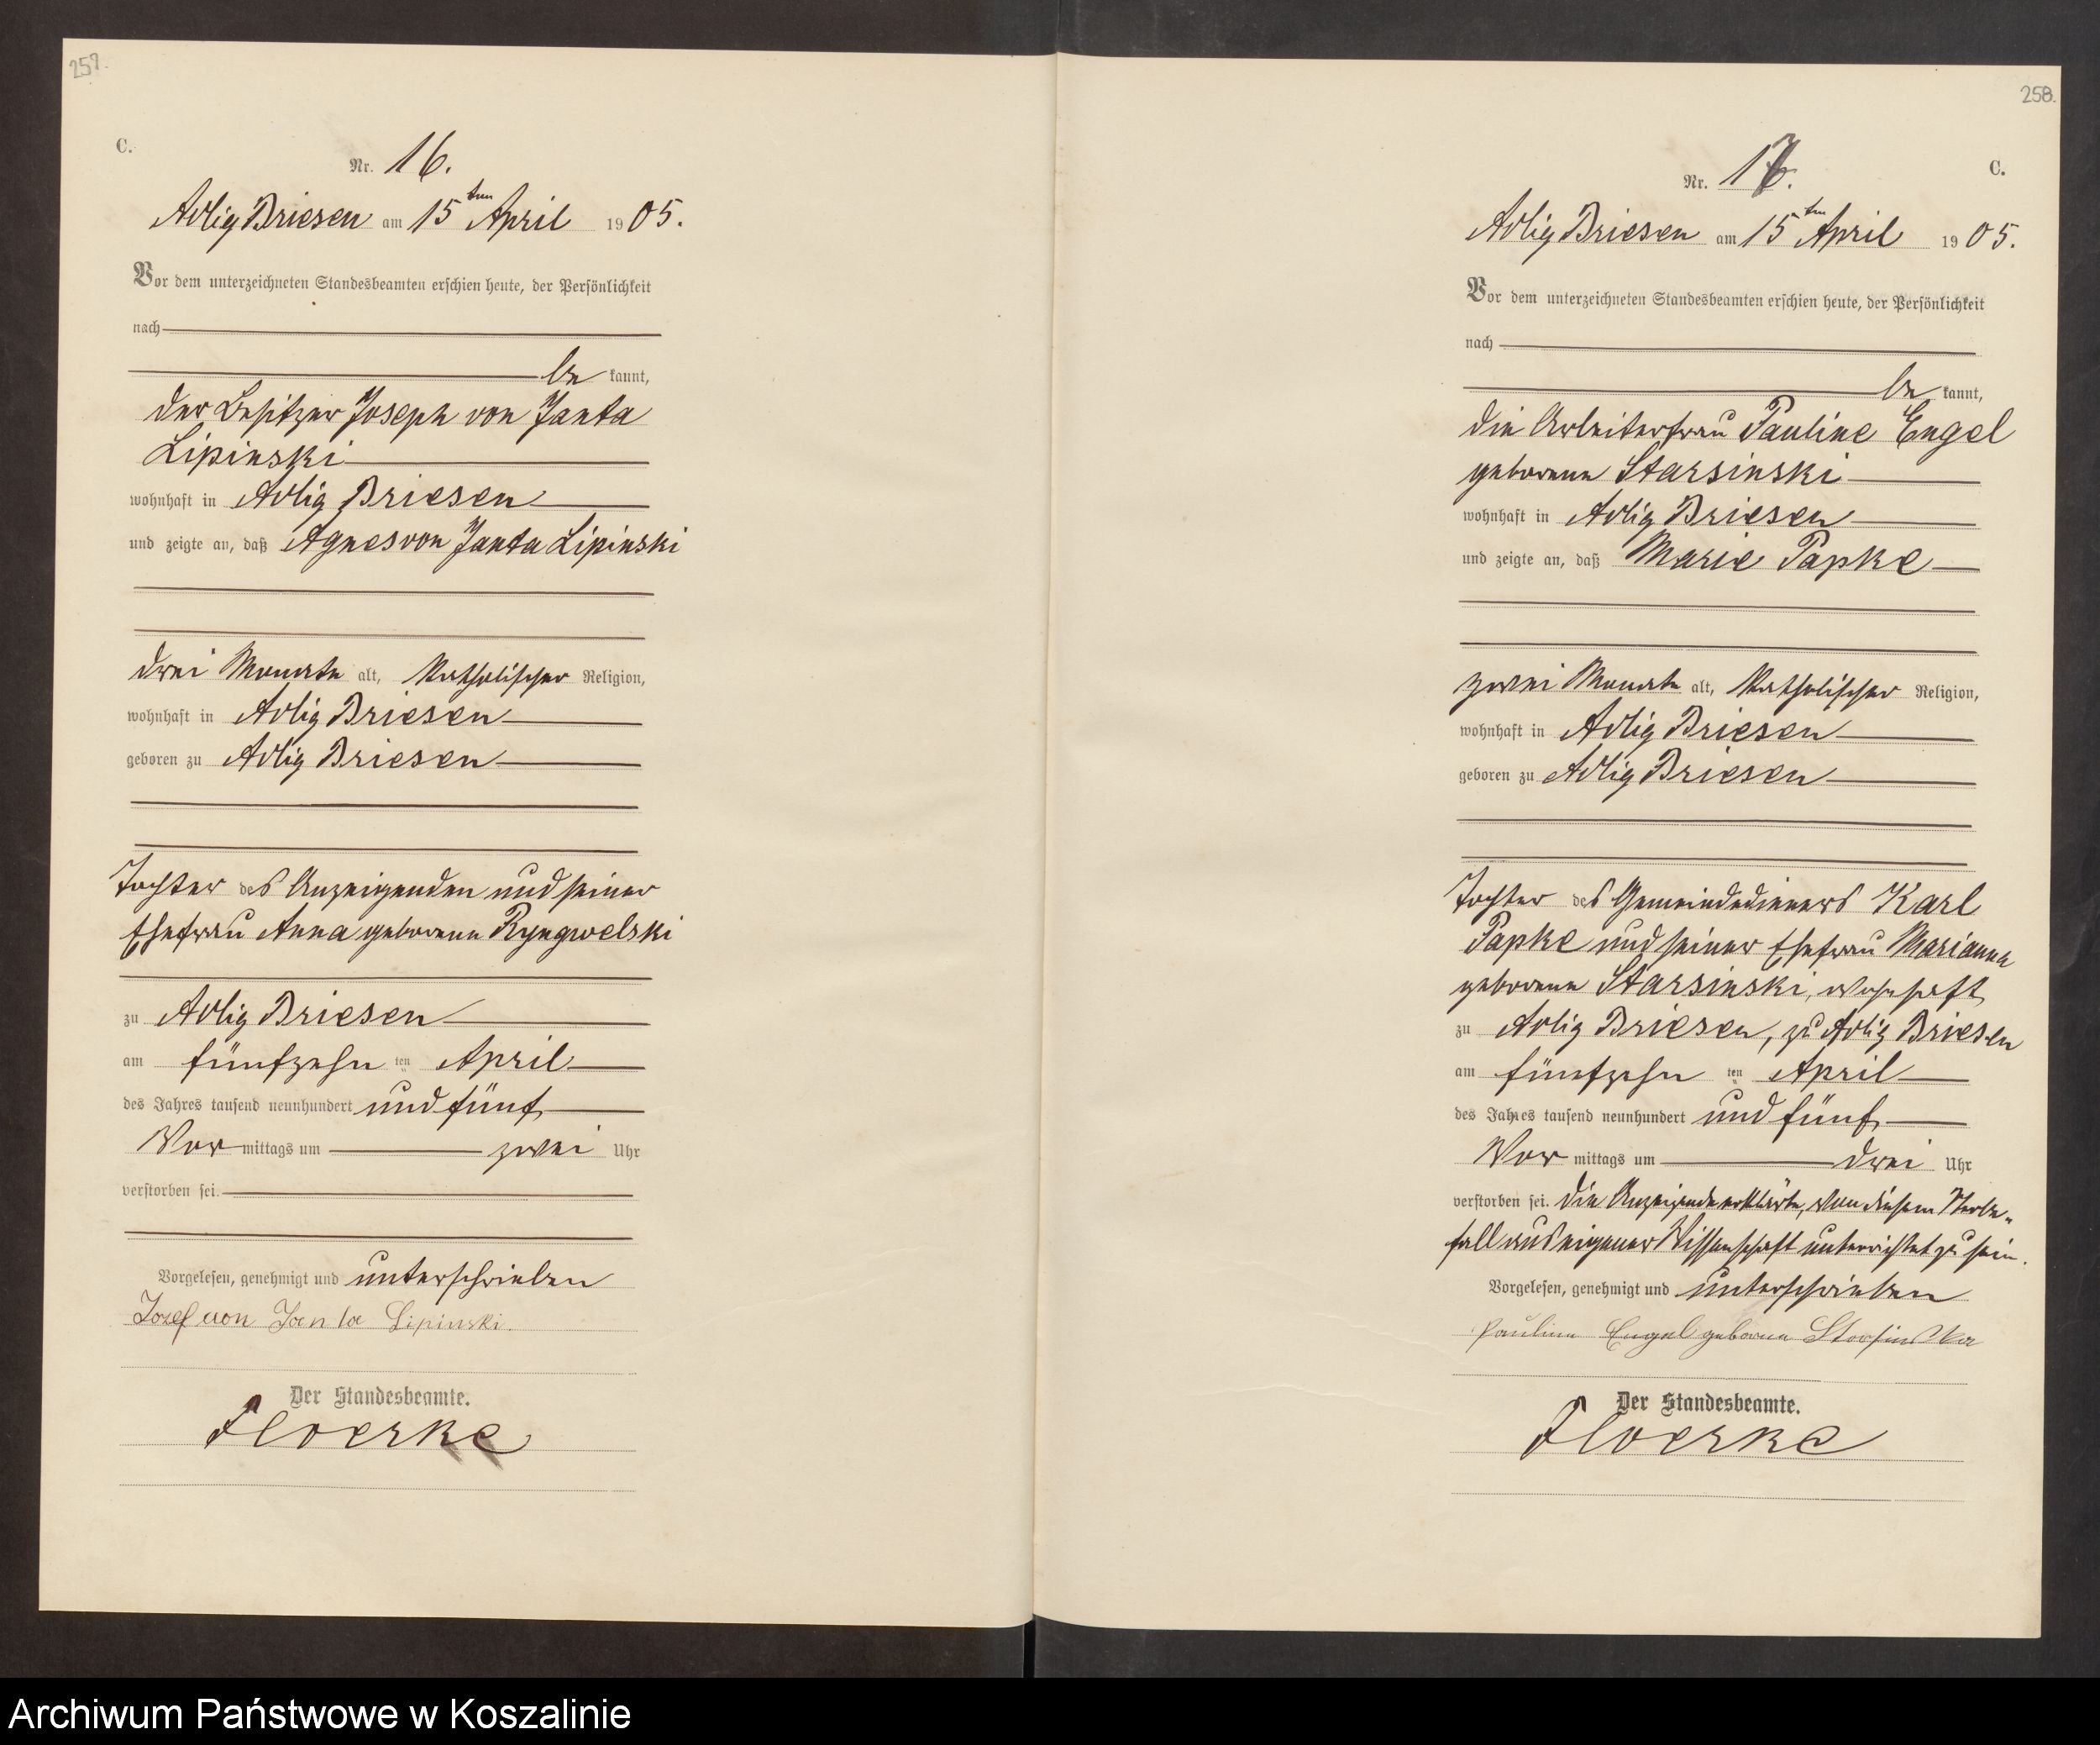 257.
C.
Nr. 16.
Adlig Briesen am 15ten April 1905.
Vor dem unterzeichneten Standesbeamten erschien heute, der Persönlichkeit
nach
be kannt,
der Besitzer Joseph von Janta
Lipinski
wohnhaft in Adlig Briesen
und zeigte an, daß Agnes von Janta Lipinski
drei Monate alt, katholischer Religion,
wohnhaft in Adlig Briesen
geboren zu Adlig Briesen
Tochter des Anzeigenden und seiner
Ehefrau Anna geborene Ryngwelski
zu Adlig Briesen
am fünfzehn ten April
des Jahres tausend neunhundert und fünf
Vor mittags um zwei Uhr
verstorben sei.
Vorgelesen, genehmigt und unterschrieben
Jozef von Janta Lipinski.
Der Standesbeamte.
Floerke
258.
C.
Nr. 17.
Adlig Briesen am 15ten April 1905.
Vor dem unterzeichneten Standesbeamten erschien heute, der Persönlichkeit
nach
be kannt,
die Arbeiterfrau Pauline Engel
geborene Starsinski
wohnhaft in Adlig Briesen
und zeigte an, daß Marie Papke
zwei Monate alt, katholischer Religion,
wohnhaft in Adlig Briesen
geboren zu Adlig Briesen
Tochter des Gemeindedieners Karl
Papke und seiner Ehefrau Marianna
geborene Starsinski, wohnhaft
zu Adlig Briesen, zu Adlig Briesen
am fünfzehn ten April
des Jahres tausend neunhundert und fünf
Vor mittags um drei Uhr
verstorben sei. Die Anzeigende erklärte, von diesem Sterbe-
fall aus eigener Wissenschaft unterrichtet zu sein.
Vorgelesen, genehmigt und unterschrieben
Pauline Engel geborne Starsinska
Der Standesbeamte.
Floerke
Archiwum Państwowe w Koszalinie